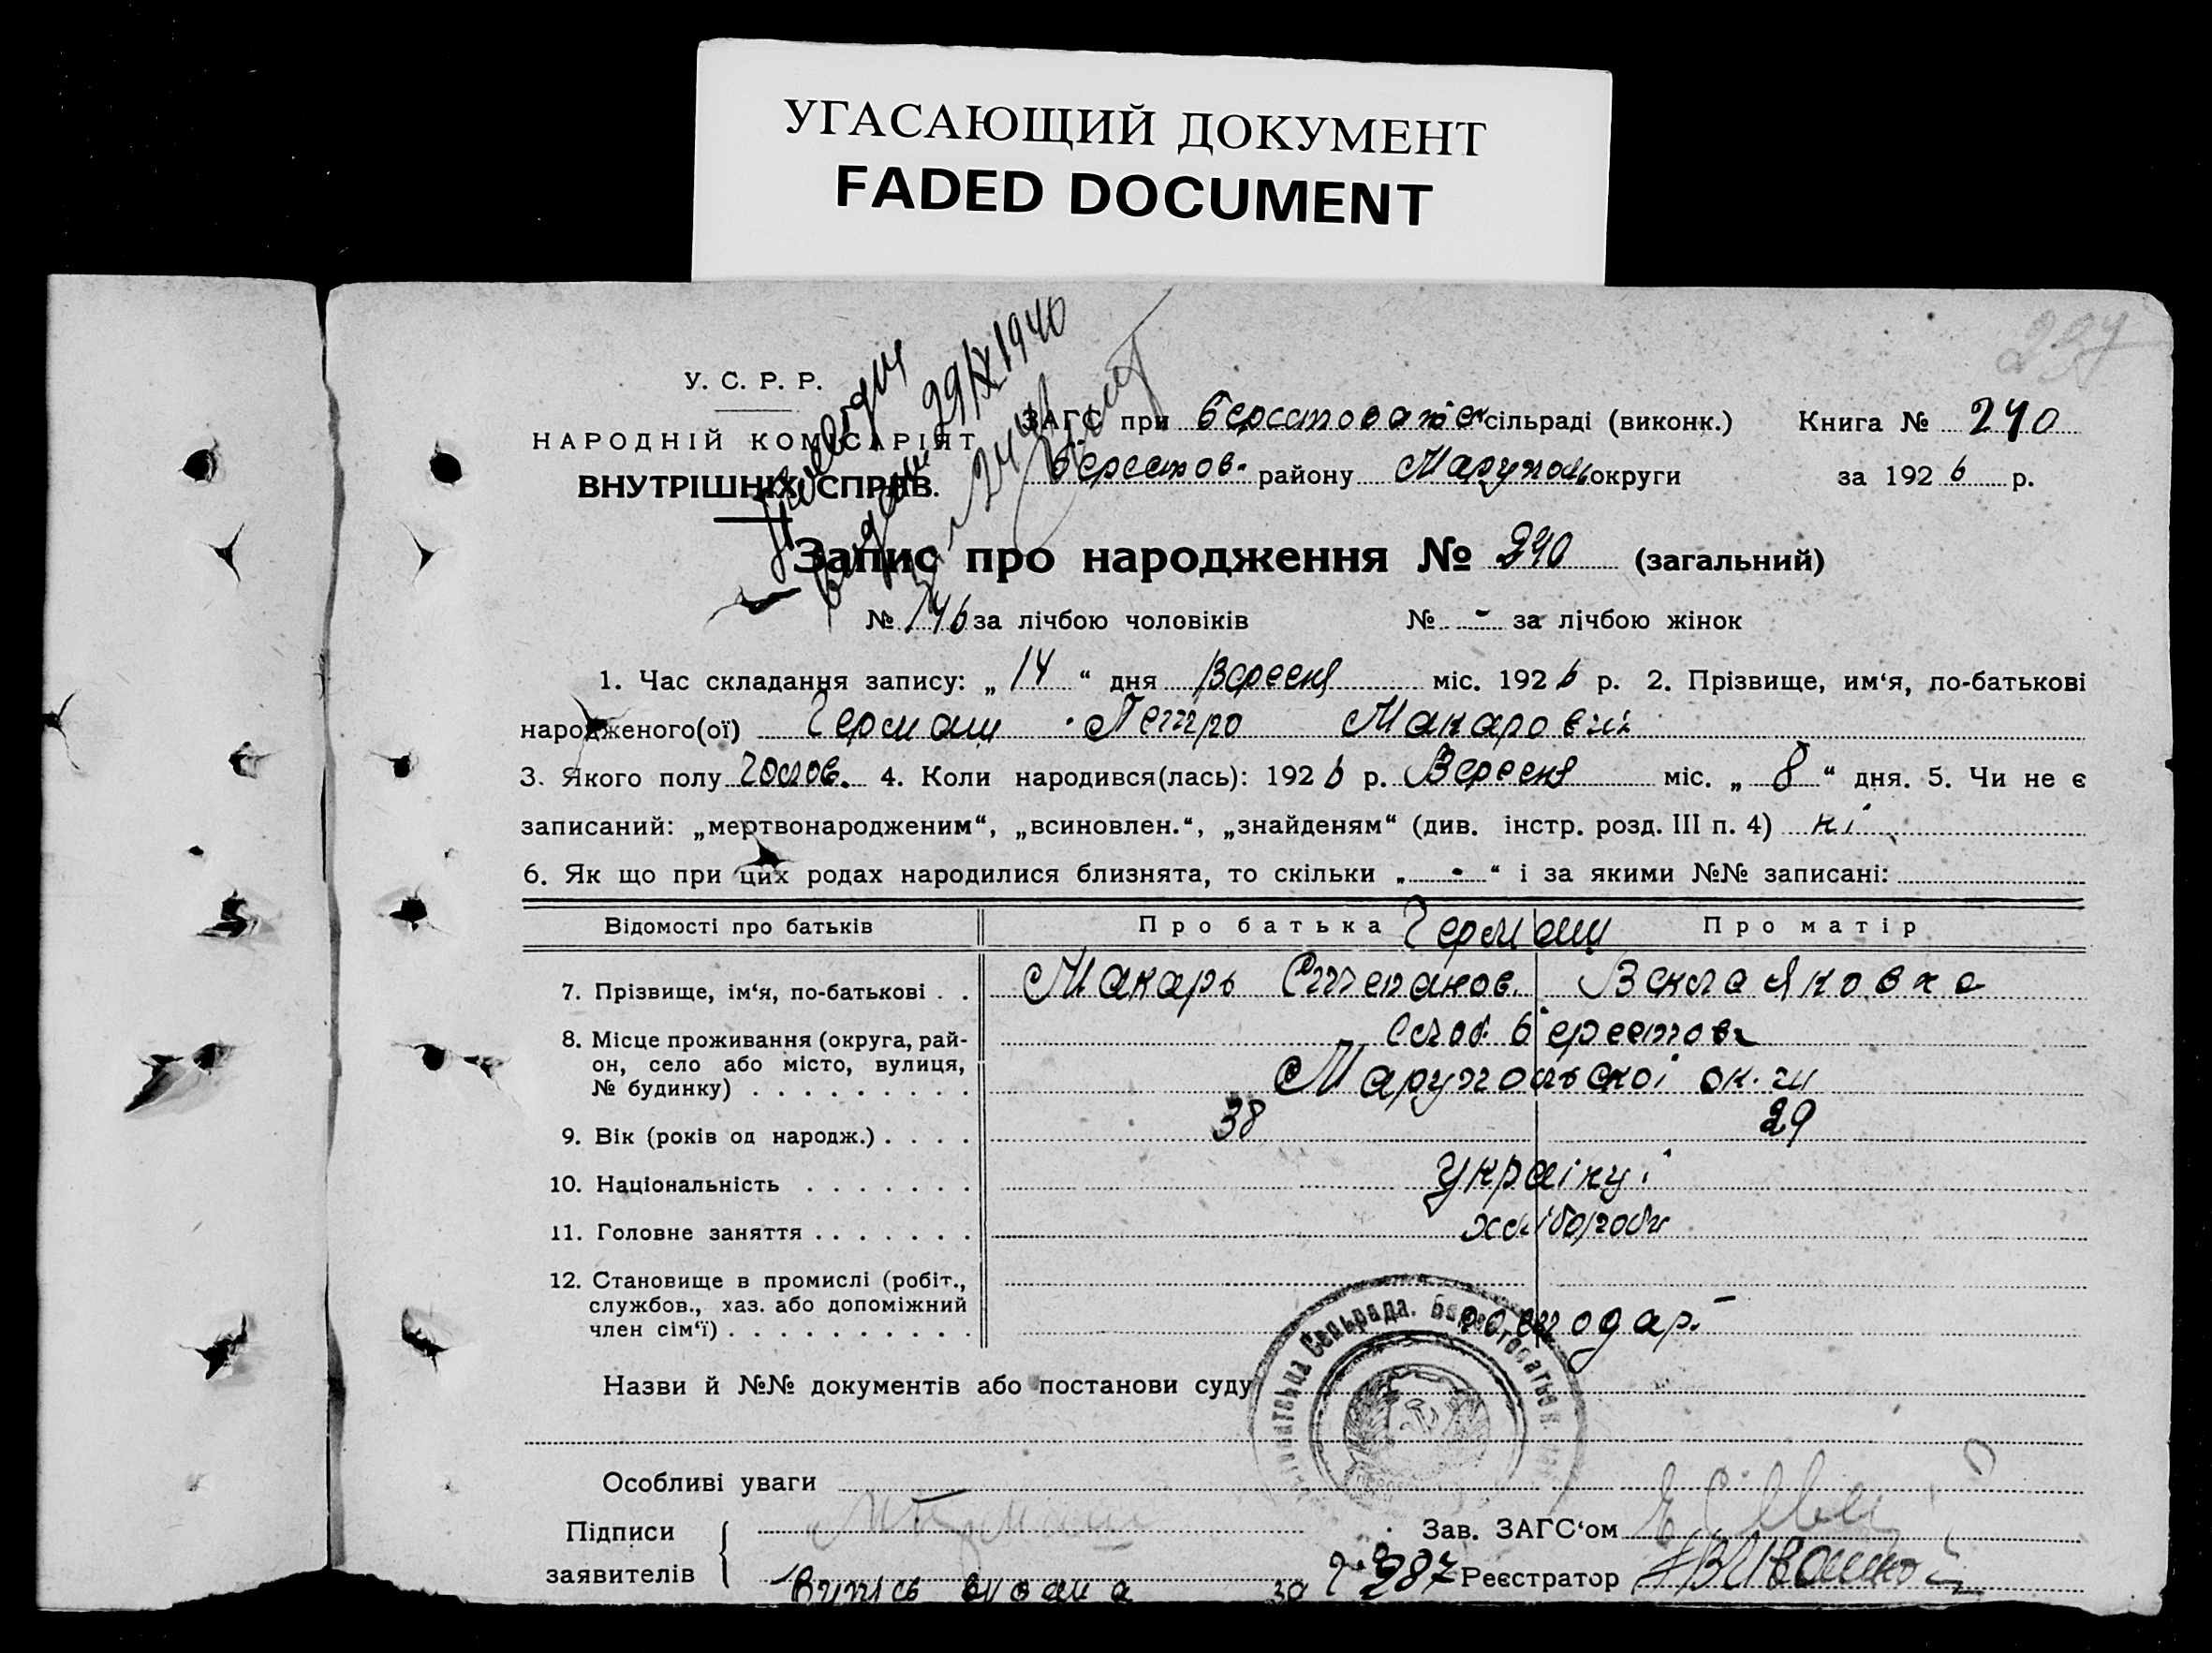 УГАСАЮЩИЙ ДОКУМЕНТ
FADED DOCUMENT
У. С. Р. Р.
НАРОДНІЙ КОМІСАРІЯТ
ВНУТРІШНІХ СПРАВ.
29/IX 1940
ЗАГС при сільраді (виконк.) Книга № 240
Берестов. району Маруполь округи за 1926 р.
Запис про народження № 240 (загальний)
№ 146 за лічбою чоловіків № - за лічбою жінок
1. Час складання запису: „ 14 “ дня Вересня міс. 1926 р. 2. Прізвище, им‘я, по-батькові
народженого(ої) Гермаш Петро Макарович
3. Якого полу чолов. 4. Коли народився(лась): 1926 р. Вересня міс. „ 8 “ дня. 5. Чи не є
записаний: „мертвонародженим“, „всиновлен.“, „знайденям“ (див. інстр. розд. III п. 4) ні
6. Як що при цих родах народилися близнята, то скільки „ - “ і за якими №№ записані:
Відомості про батьків Про батька Гермаш Про матір
7. Прізвище, ім‘я, по-батькові . . Макарь Степанов. Векла Яковна
8. Місце проживання (округа, рай-
он, село або місто, вулиця,
№ будинку) Марупольскої
9. Вік (років од народж.) . . . . 38 29
10. Національність . . . . . . . Українці
11. Головне заняття . . . . . . . хлібороби
12. Становище в промислі (робіт.,
службов., хаз. або допоміжний
член сім‘ї) . . . . . . . . . . господар.
Назви й №№ документів або постанови суду
Особливі уваги
Підписи Зав. ЗАГС‘ом
заявителів Реєстратор
за 287